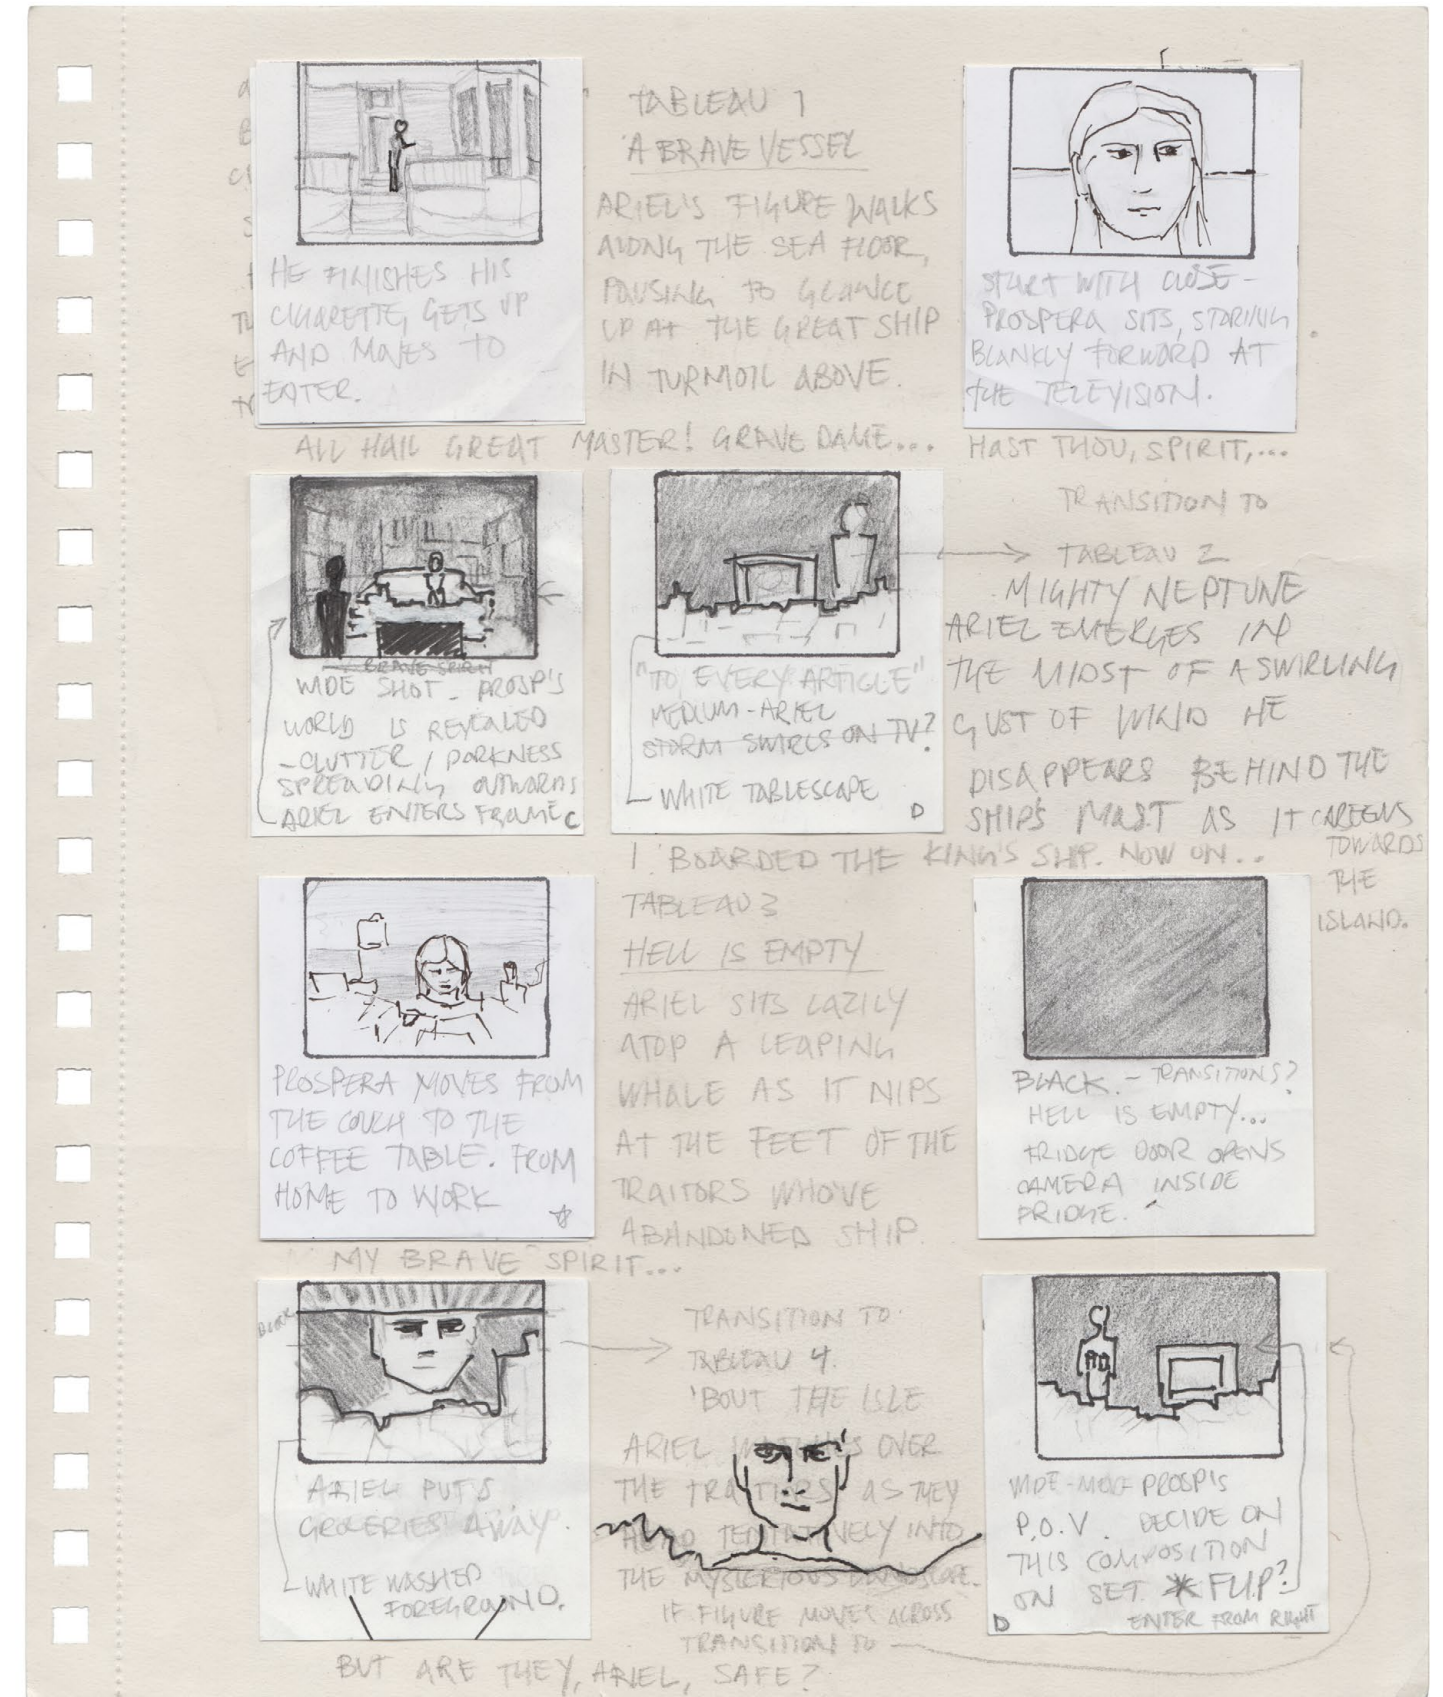 HE FINISHES HIS
CIGARETTE, GETS UP
AND MOVES TO
ENTER.
TABLEAU 1
'A BRAVE VESSEL
ARIEL'S FIGURE WALKS
ALONG THE SEA FLOOR,
PAUSING TO GLANCE
UP AT THE GREAT SHIP
IN TURMOIL ABOVE.
START WITH CLOSE -
PROSPERA SITS, STARING
BLANKLY FORWARD AT
THE TELEVISION.
ALL HAIL GREAT MASTER! GRAVE DAME...
HAST THOU, SPIRIT,...
BRAVE SPIRIT
WIDE SHOT - PROSP'S
WORLD IS REVEALED
- CLUTTER / DARKNESS
SPREADING OUTWARDS
ARIEL ENTERS FRAME C
"TO EVERY ARTICLE"
MEDIUM - ARIEL
STORM SWIRLS ON TV?
WHITE TABLESCAPE
D
TRANSITION TO
TABLEAU 2
MIGHTY NEPTUNE
ARIEL EMERGES IN
THE MIDST OF A SWIRLING
GUST OF WIND HE
DISAPPEARS BEHIND THE
SHIP'S MAST AS IT CAREENS
TOWARDS
THE
ISLAND.
I BOARDED THE KING'S SHIP. NOW ON...
PROSPERA MOVES FROM
THE COUCH TO THE
COFFEE TABLE. FROM
HOME TO WORK
TABLEAU 3
HELL IS EMPTY
ARIEL SITS LAZILY
ATOP A LEAPING
WHALE AS IT NIPS
AT THE FEET OF THE
TRAITORS WHO'VE
ABANDONED SHIP.
BLACK. - TRANSITIONS?
HELL IS EMPTY...
FRIDGE DOOR OPENS
CAMERA INSIDE
FRIDGE.
MY BRAVE SPIRIT...
ARIEL PUTS
GROCERIES AWAY.
WHITE WASHED
FOREGROUND.
TRANSITION TO
TABLEAU 4.
'BOUT THE ISLE
ARIEL WATCHES OVER
THE TRAITORS AS THEY
HEAD TENTATIVELY INTO
THE MYSTERIOUS LANDSCAPE.
IF FIGURE MOVES ACROSS
TRANSITION TO
WIDE - MOVE PROSP'S
P.O.V. DECIDE ON
THIS COMPOSITION
ON SET. * FLIP?
D ENTER FROM RIGHT
BUT ARE THEY, ARIEL, SAFE?